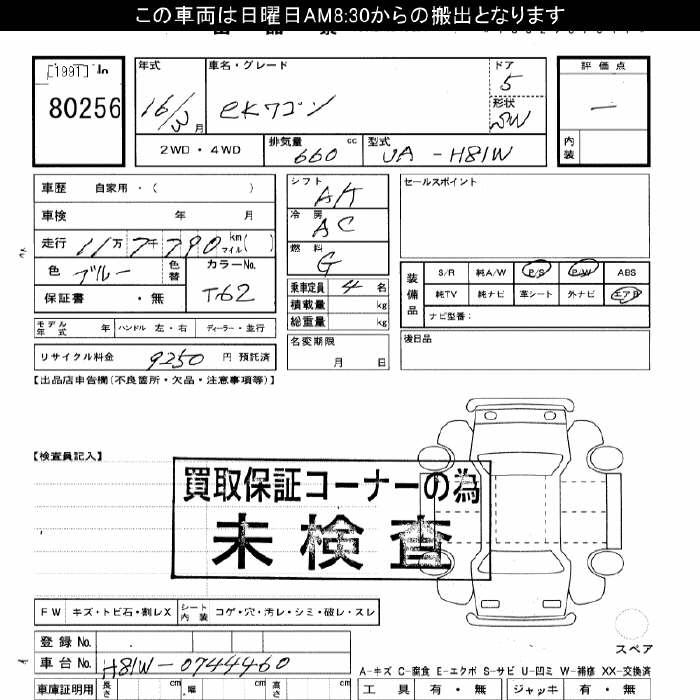 この車両は日曜日AM8:30からの搬出となります
[1991]
80256
年式 車名・グレード ドア 評価点
16/3月 eKワゴン 5
形状
SW
2WD・4WD 排気量 660 cc 型式 UA-H81W 内装
車歴 自家用・( ) シフト AT セールスポイント
車検 年 月 冷房 AC
走行 11万7千790 km マイル( ) 燃料 G
色 ブルー 色替 カラーNo. T62
乗車定員 4 名
積載量 kg
総重量 kg
保証書 ・無
装備品 S/R 純A/W P/S P/W ABS
純TV 純ナビ 革シート 外ナビ エアB
ナビ型番:
モデル年式 年 ハンドル 左・右 ディーラー・並行
名変期限 月 日
後日品
リサイクル料金 9250 円 預託済
【出品店申告欄(不良箇所・欠品・注意事項等)】
【検査員記入】
買取保証コーナーの為
未検査
FW キズ・トビ石・割レX シート内装 コゲ・穴・汚レ・シミ・破レ・スレ
スペア
登録 No.
車台 No. H81W-0744460
A-キズ C-腐食 E-エクボ S-サビ U-凹ミ W-補修 XX-交換済
車庫証明用 長さ cm 幅 cm 高さ cm 工具 有・無 ジャッキ 有・無